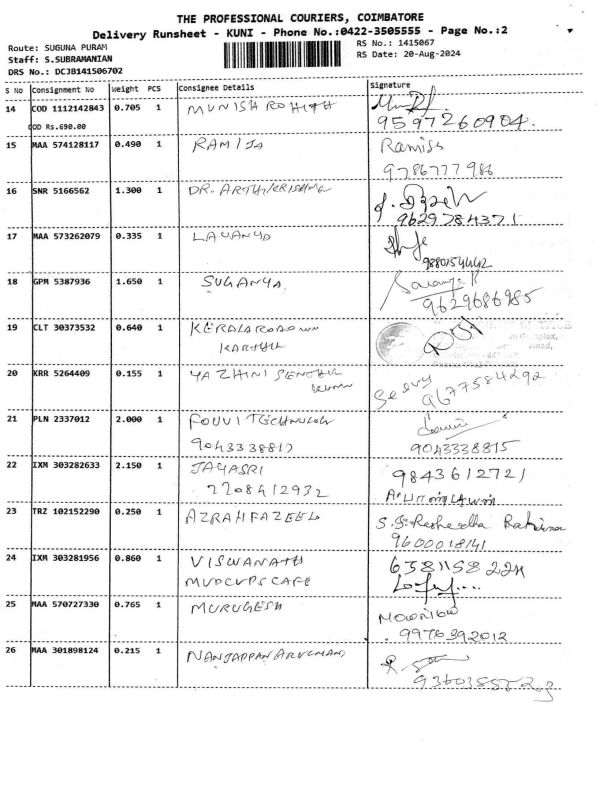 THE PROFESSIONAL COURIERS, COIMBATORE
Delivery Runsheet - KUNI - Phone No.:0422-3505555 - Page No.:2
Route: SUGUNA PURAM
RS No.: 1415067
Staff: S.SUBRAMANIAN
RS Date: 20-Aug-2024
DRS No.: DCJB141506702
S No Consignment No Weight PCS Consignee Details Signature
14 COD 1112142843 0.705 1 MUNISH ROHITH
COD Rs.690.00 9597260904.
15 MAA 574128117 0.490 1 RAMIJA Ramiss
9786777986
16 SNR 5166562 1.300 1 DR. ARTHIKRISHNA
9629784371
17 MAA 573262079 0.335 1 LAVANYA
9880154442
18 GPM 5387936 1.650 1 SUGANYA.
9629686985
19 CLT 30373532 0.640 1 KERALAROADWN
KARTHIK Road,
20 KRR 5264409 0.155 1 YAZHINI SENTHIL
Selvy 9677584292
21 PLN 2337012 2.000 1 FOUVITECHNOLOGY
9043338817 9043338815
22 IXM 303282633 2.150 1 JAYASRI 9843612721
7708412932
23 TRZ 102152290 0.250 1 AZRAHFAZEEL
9600018141
24 IXM 303281956 0.860 1 VISWANATH
MUDCUPSCAFE
25 MAA 570727330 0.765 1 MURUGESH
9976392012
26 MAA 301898124 0.215 1 NANJAPPAN ARUCHAND